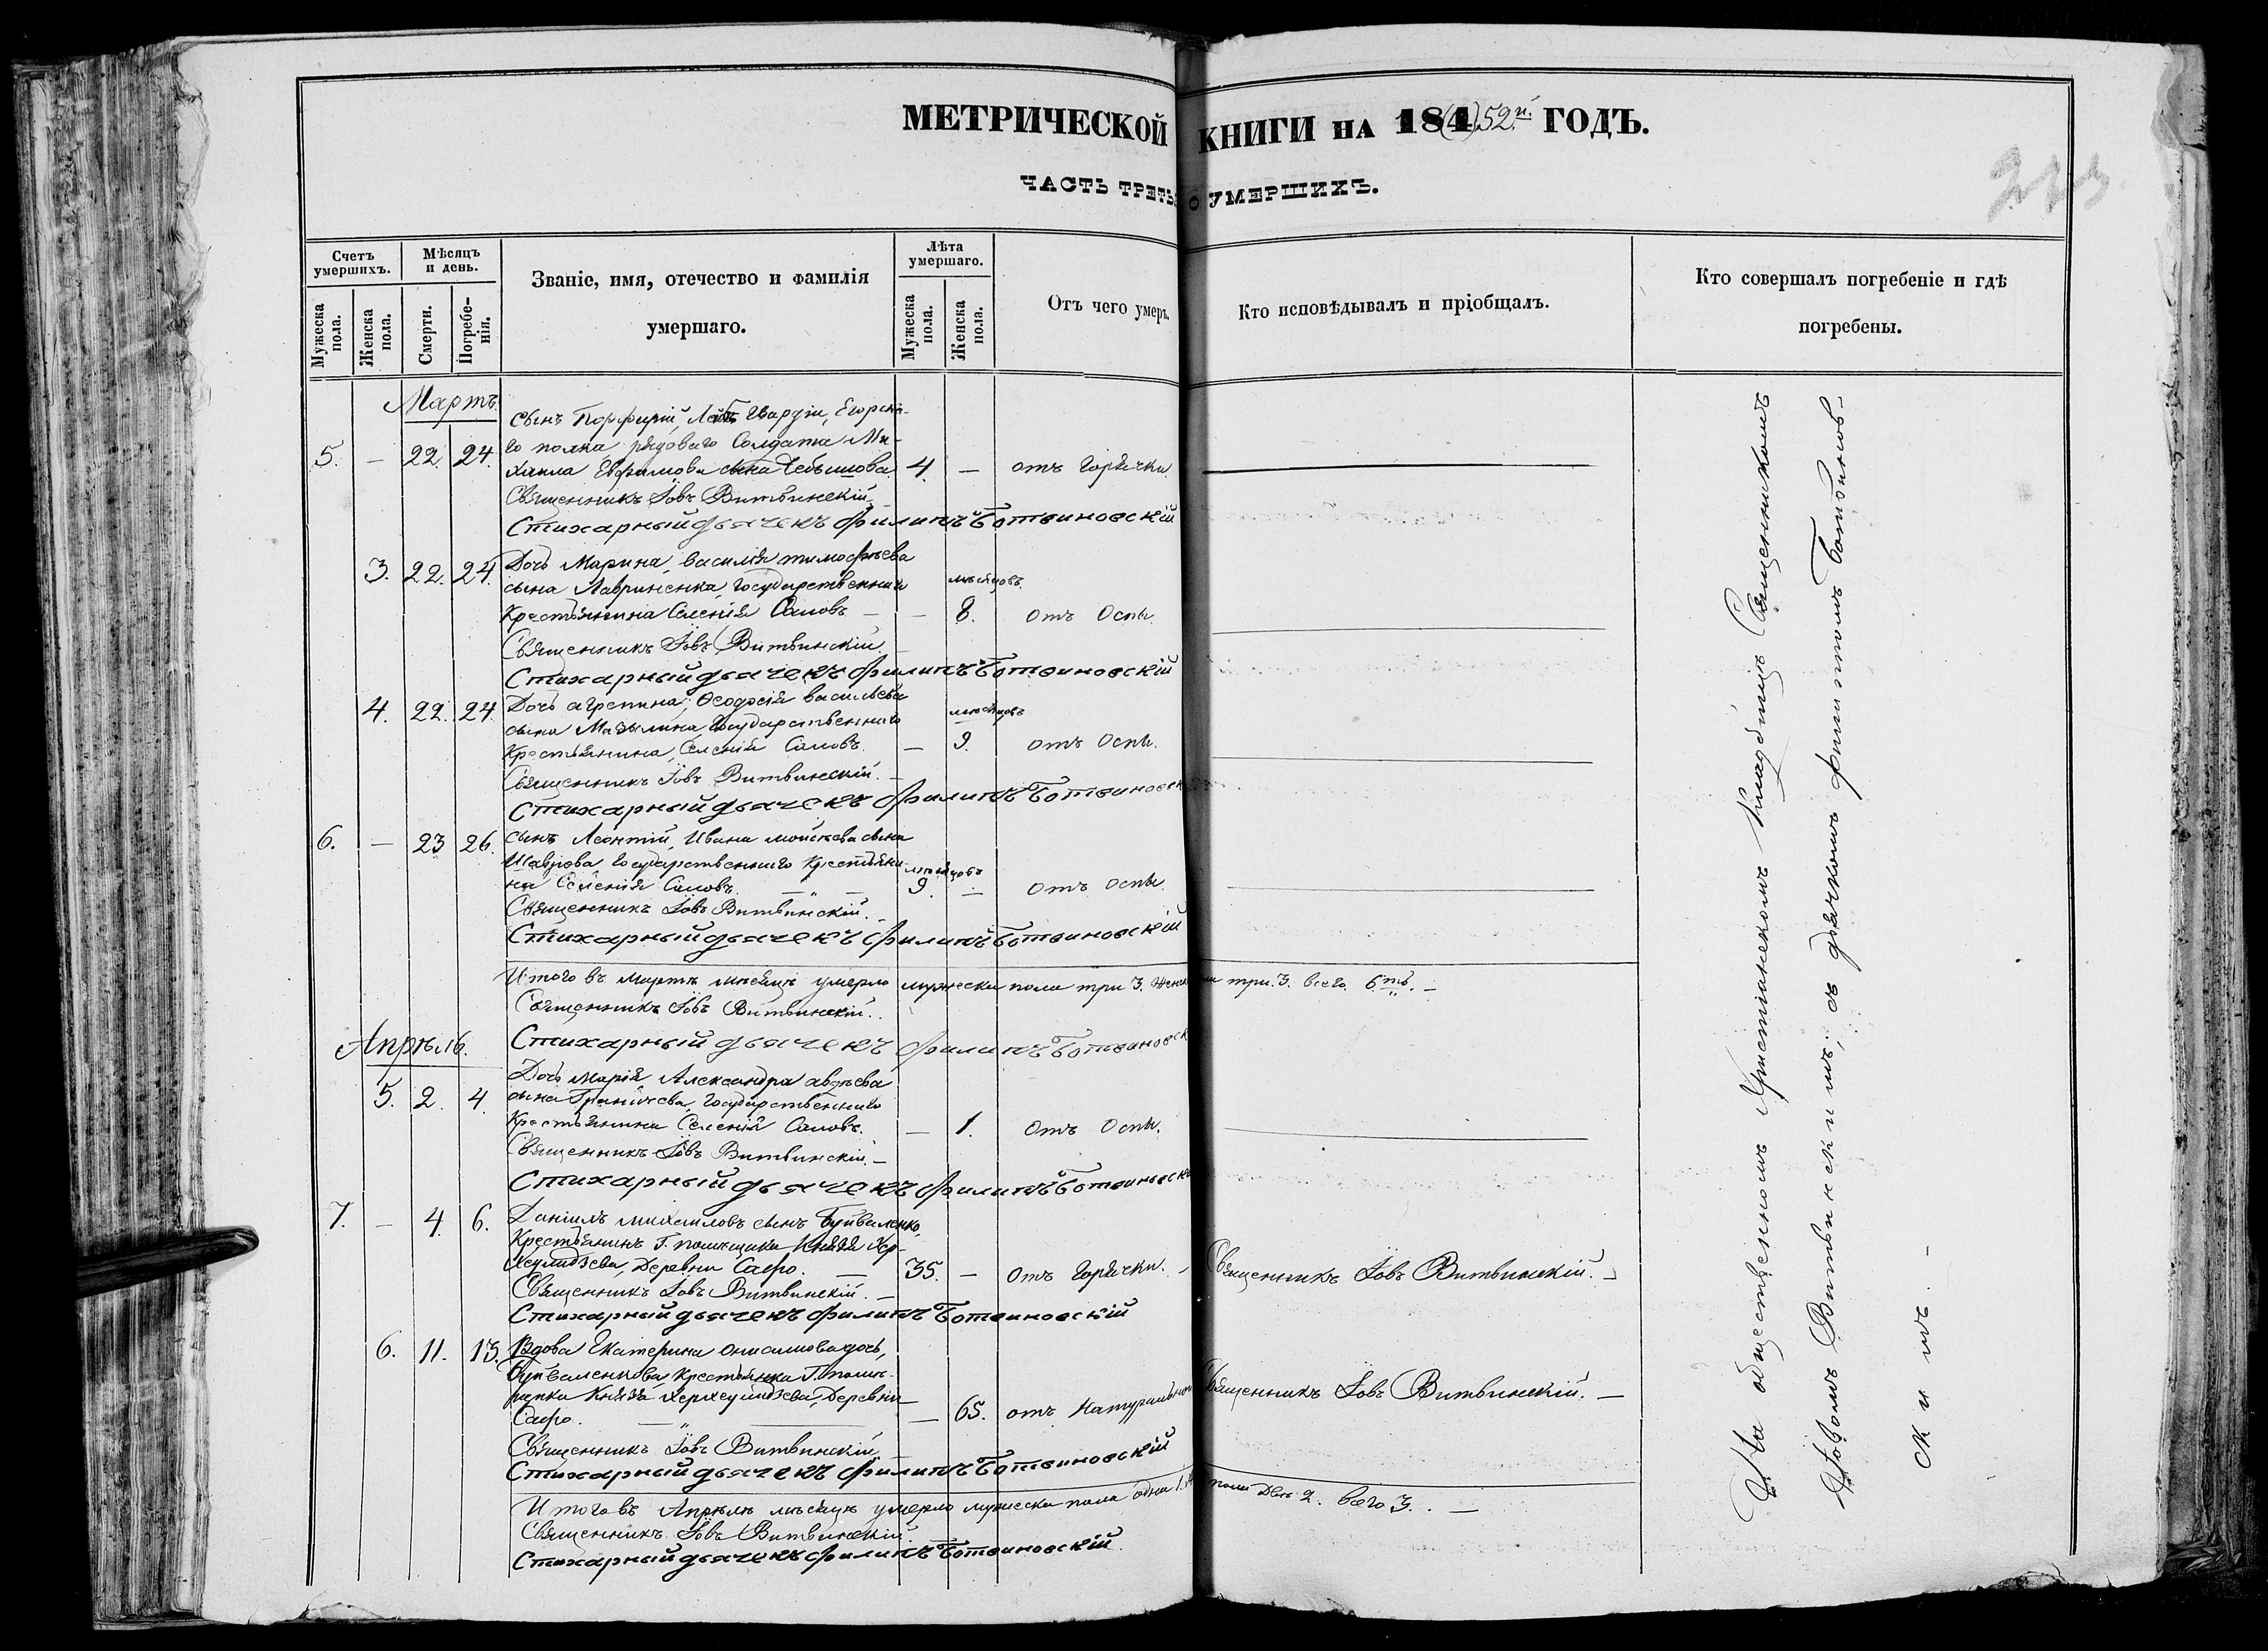 МЕТРИЧЕСКОЙ КНИГИ НА 184(4)52.й ГОДЪ.
ЧАСТЬ ТРЕТЬЯ О УМЕРШИХЪ.
Счетъ умершихъ.
Мѣсяцъ и день.
Званіе, имя, отечество и фамилія умершаго.
Лѣта умершаго.
Отъ чего умеръ.
Кто исповѣдывалъ и пріобщалъ.
Кто совершалъ погребеніе и гдѣ погребены.
Мужеска пола.
Женска пола.
Смерти.
Погребенія.
Мужеска пола.
Женска пола.
Мартъ.
Сынъ Порфирій, Лейбъ Гвардіи, Егорска-
5. — 22. 24. го полка, рядоваго Солдата Ми-
хаила Евфимова сына 4. — отъ Горячки.
Священникъ Іовъ Витвинскій
Стихарный дьячекъ Филипъ Ботвиновскій
3. 22. 24. Дочь Марина, василія тимофѣева
сына Лавриненка, Государственнаго мѣсяцовъ.
Крестьянина Селенія Саловъ — — 8. Отъ Оспы.
Священникъ Іовъ Витвинскій.
Стихарный дьячекъ Филипъ Ботвиновскій
4. 22. 24. Дочь агрепина, Ѳеодосія васильева
сына Государственнаго мѣсяцовъ
Крестьянина, Селенія Саловъ. — 9. отъ Оспы.
Священникъ Іовъ Витвинскій. —
Стихарный дьячекъ Филипъ Ботвиновск
6. — 23 26. сынъ Леонтій, Ивана мойсѣева сына
Государственнаго Крестьяни-
на Селенія Саловъ. мѣсяцовъ 9. — отъ Оспы.
Священникъ Іовъ Витвинскій.
Стихарный дьячекъ Филипъ Ботвиновскій
Итого въ Мартѣ мѣсяцѣ умерло мужеска пола три 3. Женска три. 3. всего. 6ть. —
Священникъ Іовъ Витвинскій.
Стихарный дьячекъ Филипъ Ботвиновск
Апрѣль.
Дочь Марія Александра авдѣева
5. 2. 4. сына Государственнаго
Крестьянина Селенія Саловъ. — 1. Отъ Оспы.
Священникъ Іовъ Витвинскій. —
Стихарный дьячекъ Филипъ Ботвиновски
7. — 4. 6. Даніилъ михаиловъ сынъ Буйваленко,
Крестьянинъ Г. помѣщика Князя Хер-
хеулидзева, Деревни Сафо. — 35. — Отъ Горячки. — Священникъ Іовъ Витвинскій. —
Священникъ Іовъ Витвинскій. —
Стихарный дьячекъ Филипъ Ботвиновскій
6. 11. 13. Вдова Екатерина дочь,
Буйваленкова, Крестьянка Г. помѣ-
щика Князя Херхеулидзева, Деревни
Сафо. — 65. отъ Натуральной Священникъ Іовъ Витвинскій. —
Священникъ Іовъ Витвинскій —
Стихарный дьячекъ Филипъ Ботвиновскій
Итого въ Апрѣлѣ мѣсяцѣ умерло мужеска пола одна 1. пола Двѣ 2. всего 3. —
Священникъ Іовъ Витвинскій
Стихарный дьячекъ Филипъ Ботвиновскій.
На общественномъ Христіанскомъ Кладбищѣ Священникомъ
Іовомъ Витвинскимъ; съ дьячкомъ Филиппомъ Ботвинов-
скимъ. —